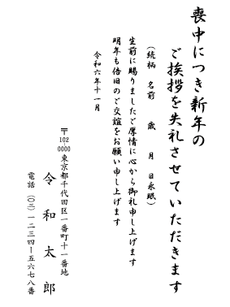 喪中につき新年の
ご挨拶を失礼させていただきます
（続柄　名前　歳　月　日永眠）
生前に賜りましたご厚情に心から御礼申し上げます
明年も倍旧のご交誼をお願い申し上げます
令和六年十一月
〒102-0000
東京都千代田区一番町十一番地
令和太郎
電話（〇三）一二三四ー五六七八番